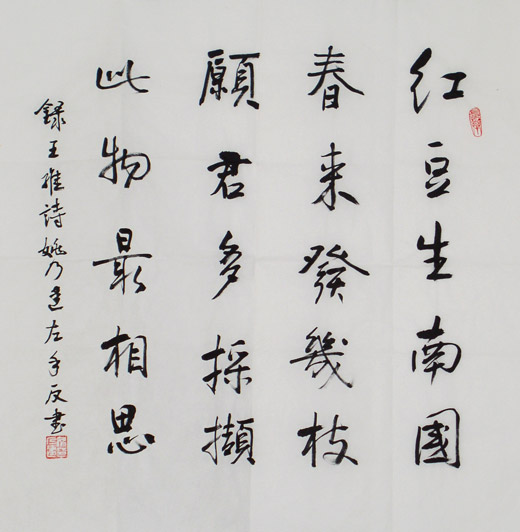 紅豆生南國
春来發幾枝
願君多採擷
此物最相思
録王維詩姚乃達左手反書